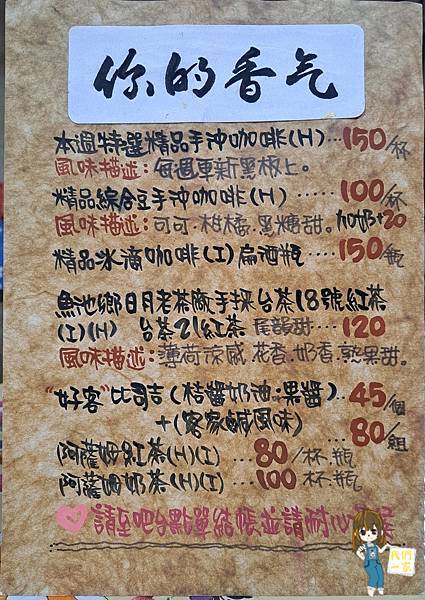 你的香气
本週特選精品手沖咖啡(H)…150/杯
風味描述：每週更新黑板上。
精品綜合豆手沖咖啡(H)……100/杯
風味描述：可可.柑橘.黑糖甜。加奶+20
精品冰滴咖啡(I)扁酒瓶…150/瓶
魚池鄉日月老茶廠手採台茶18號紅茶
(I)(H) 台茶21紅茶 尾韻甜…120
風味描述：薄荷涼感.花香.奶香.熟果甜。
"好客"比司吉(桔醬奶油.果醬)..45/個
+(客家鹹風味)…80/組
阿薩姆紅茶(H)(I)…80/杯.瓶
阿薩姆奶茶(H)(I)…100 杯.瓶
請至吧台點單結帳並請耐心
我們一家